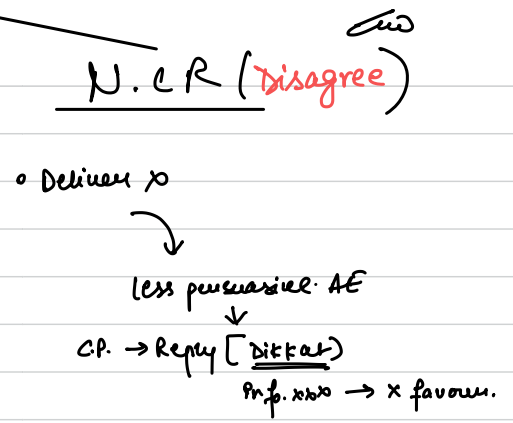 N.CR (Disagree)
• Deliver x
less persuasive. AE
C.P. → Reply [Dikkat)
Info. xxx → x favour.